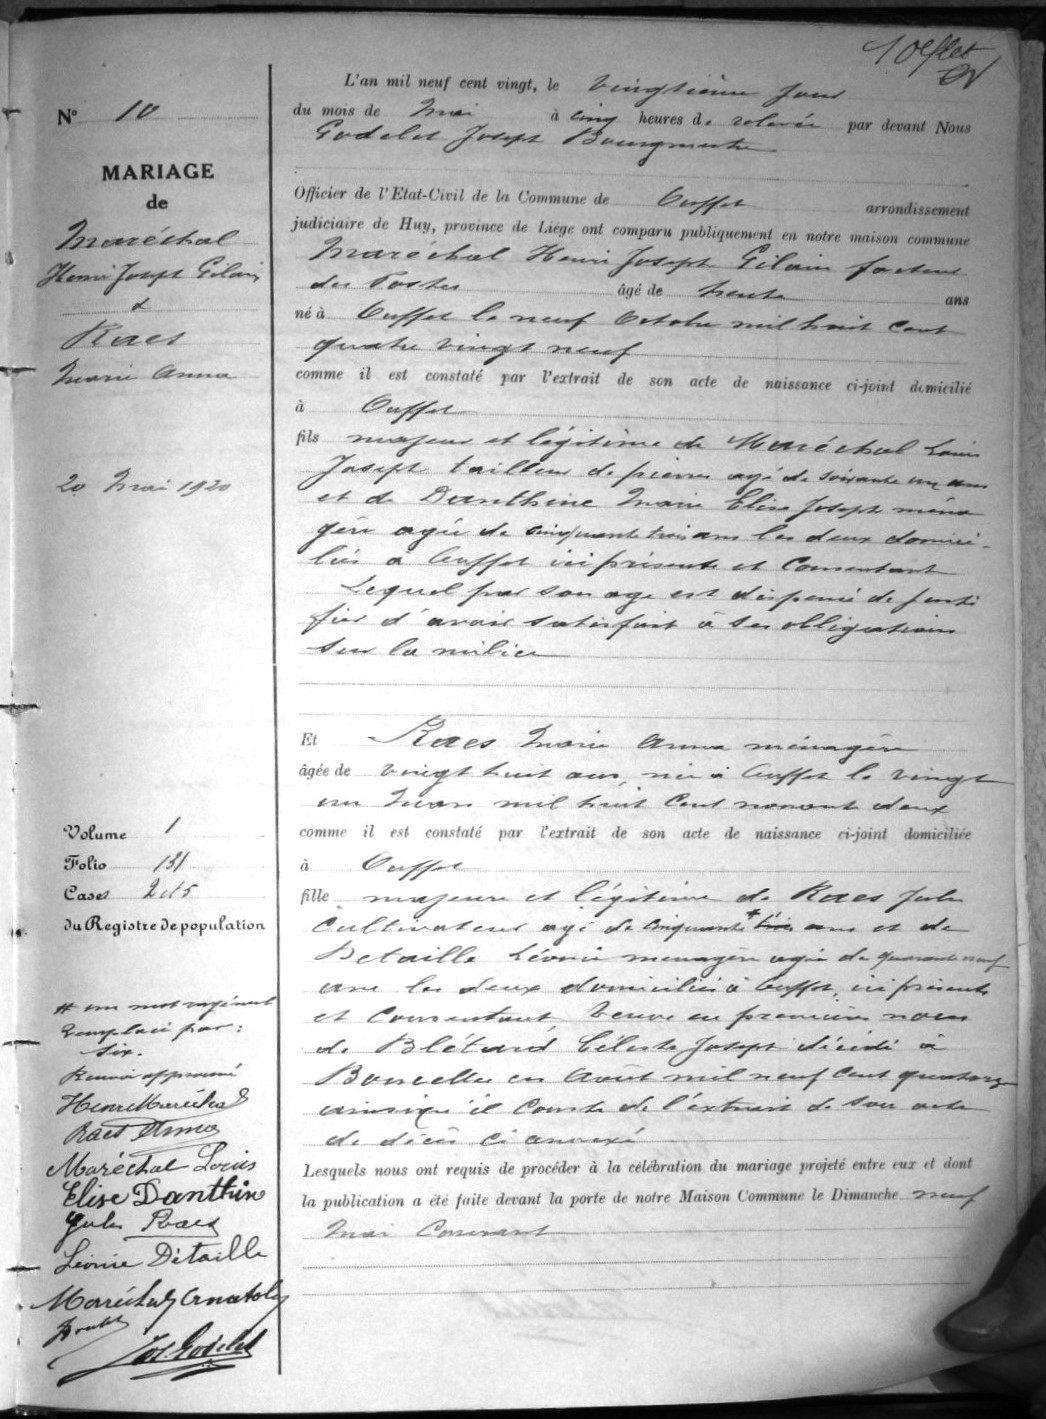 N° 10
MARIAGE
de
Maréchal
Henri Joseph Gilain
&
Raes
Marie Anna
20 Mai 1920
Volume 1
Folio 131
Cases 2 et 5
du Registre de population
# un mot rayé nul
Remplacé par :
six.
Renvoi approuvé
Henri Maréchal
Raes Anna
Maréchal Louis
Elise Danthine
Jules Raes
Léonie Détaille
Maréchal Anatole
Jos. Godelet
L'an mil neuf cent vingt, le vingtième jour
du mois de Mai à cinq heures de relevée par devant Nous
Godelet Joseph Bourgmestre
Officier de l'Etat-Civil de la Commune de Ouffet arrondissement
judiciaire de Huy, province de Liége ont comparu publiquement en notre maison commune
Maréchal Henri Joseph Gilain facteur
des Postes âgé de trente ans
né à Ouffet le neuf Octobre mil huit cent
quatre vingt neuf
comme il est constaté par l'extrait de son acte de naissance ci-joint domicilié
à Ouffet
fils majeur et légitime de Maréchal Louis
Joseph tailleur de pierres agé de soixante un ans
et de Danthine Marie Elise Joseph ména
gère agée de cinquante trois ans les deux domici-
liés à Ouffet ici présents et Consentant
Lequel par son age est dispensé de justi
fier d'avoir satisfait à ses obligations
sur la milice
Et Raes Marie Anna ménagère
âgée de vingt huit ans, née à Ouffet le vingt
un Mars mil huit Cent nonante deux
comme il est constaté par l'extrait de son acte de naissance ci-joint domiciliée
à Ouffet
fille majeure et légitime de Raes Jules
Cultivateur agé de cinquante # trois ans et de
Detaille Léonie menagère agée de quarante neuf
ans les deux domiciliés à Ouffet, ici présents
et Consentant, Veuve en premières noces
de Blétard Céleste Joseph décédé à
Boncelles en Août mil neuf Cent quatorze
ainsi qu'il Conste de l'extrait de son acte
de décès Ci annexé
Lesquels nous ont requis de procéder à la célébration du mariage projeté entre eux et dont
la publication a été faite devant la porte de notre Maison Commune le Dimanche neuf
Mai Courant